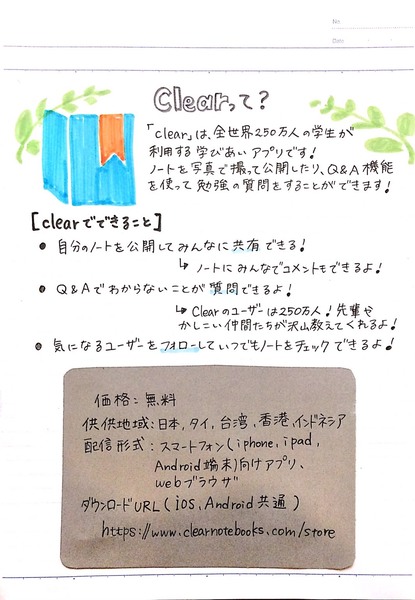 No.
Date
Clearって？
「clear」は、全世界250万人の学生が
利用する学びあいアプリです！
ノートを写真で撮って公開したり、Q&A機能
を使って勉強の質問をすることができます！
[clearでできること]
● 自分のノートを公開してみんなに共有できる！
↳ ノートにみんなでコメントもできるよ！
● Q&Aでわからないことが質問できるよ！
↳ Clearのユーザーは250万人！先輩や
かしこい仲間たちが沢山教えてくれるよ！
● 気になるユーザーをフォローしていつでもノートをチェックできるよ！
価格：無料
供供地域：日本，タイ，台湾，香港，インドネシア
配信形式：スマートフォン（iphone，ipad，
Android端末）向けアプリ、
webブラウザ
ダウンロードURL（iOS、Android共通）
https://www.clearnotebooks.com/store